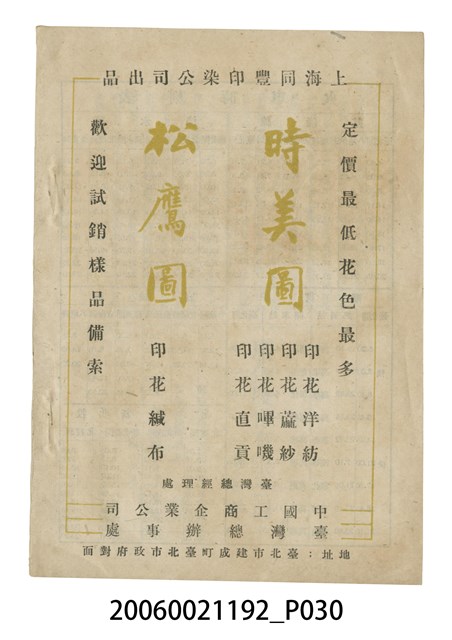 上海同豐印染公司出品
定價最低花色最多
時美圖
印花洋紡
印花蔴紗
印花嗶嘰
印花直貢
松鷹圖
印花緎布
歡迎試銷樣品備索
臺灣總經理處
中國工商企業公司
臺灣總辦事處
地址：臺北市建成町臺北市政府對面
20060021192_P030